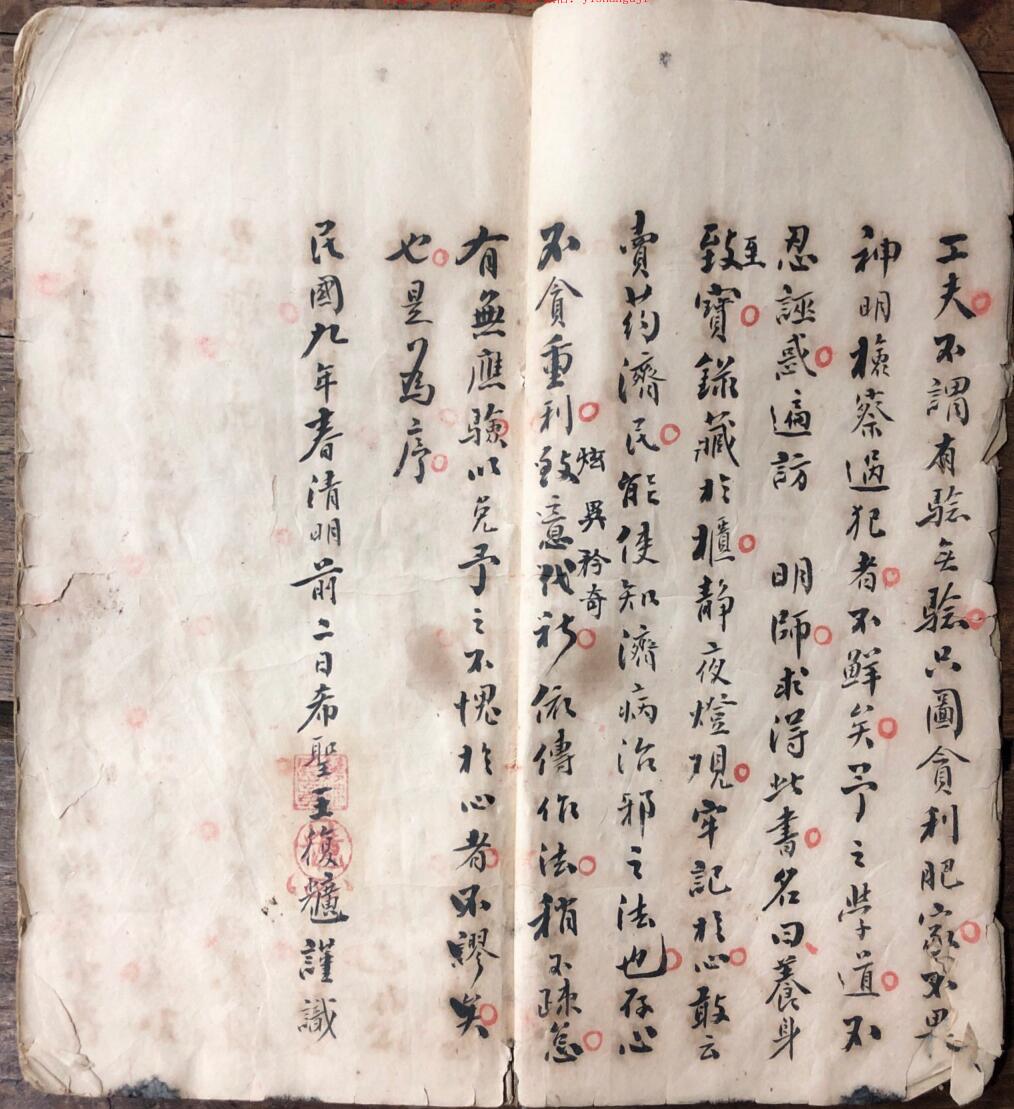 工夫不謂有驗無驗只圖貪利肥家不畏
神明檢察過犯者不鮮矣予之學道不
忍誣惑遍訪　明師求得此書名曰養身
至寶錄藏於櫃靜夜燈覌牢記於心敢云
賣药濟民能使知濟病治邪之法也存心
不貪重利炫異矜奇依傳作法稍不疎怠
有無應驗以免予之不愧於心者不謬矣
也是為序
民國九年春清明前二日希聖王復謹識